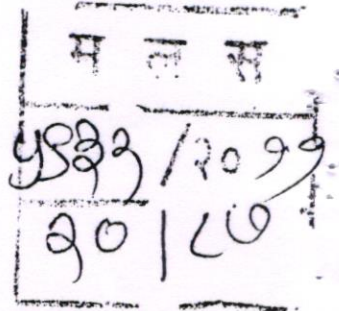 म ल स
५९३३/२०११
२०/८७